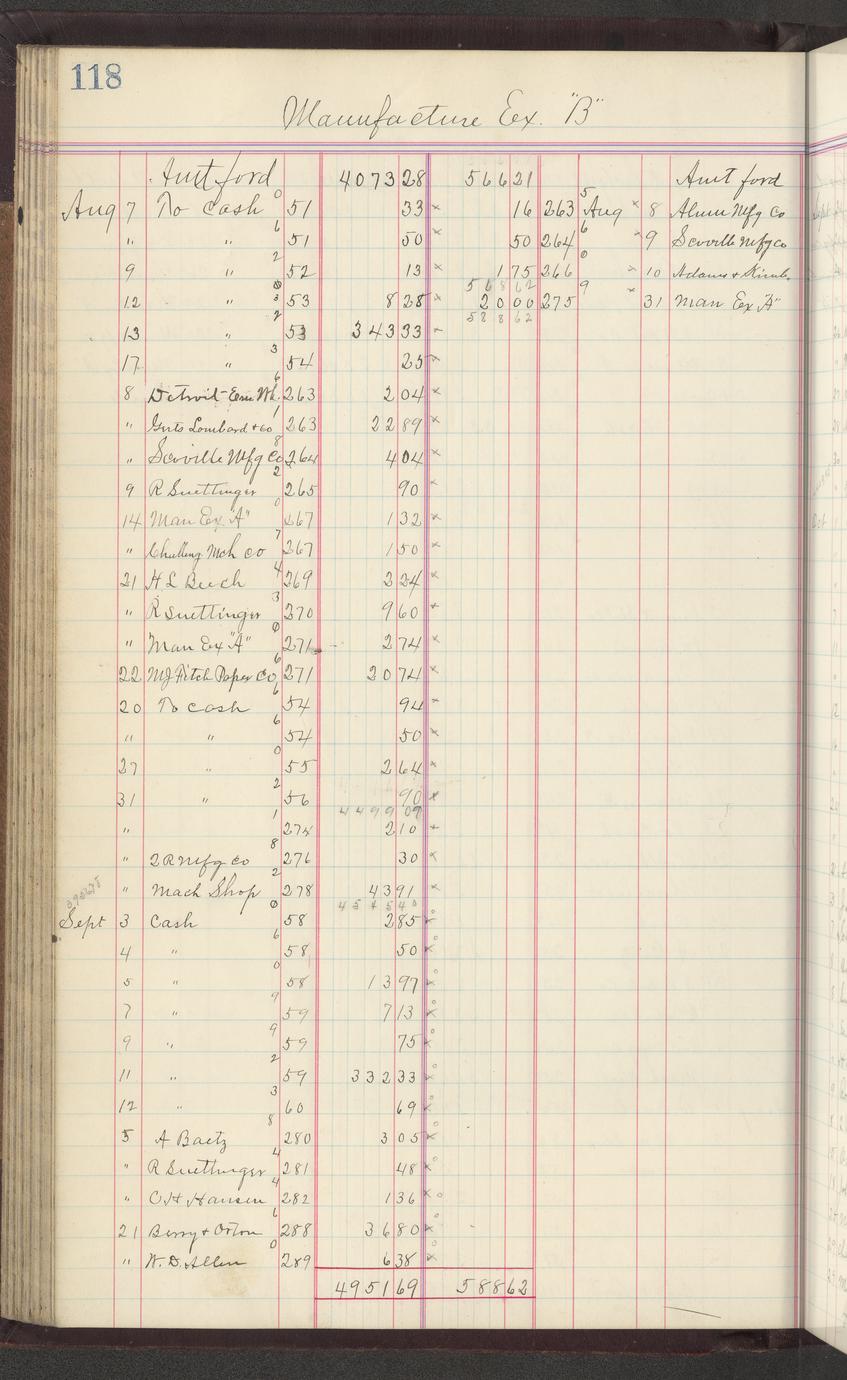 118
Manufacture Ex. "B"
Amt ford 4073 28 566 21 Amt ford
Aug 7 To Cash 51 33 × 16 263 Aug × 8 Alum Mfg Co
" " 51 50 × 50 264 × 9 Scoville Mfg Co
9 " 52 13 × 1 75 266 × 10 Adams +
568 62
12 " 53 8 28 × 20 00 275 × 31 Man Ex "A"
588 62
13 " 53 343 33 ×
17 " 54 25 ×
8 Detroit 263 2 04 ×
" Gerts Lombard + Co 263 22 89 ×
" Scoville Mfg Co 264 4 04 ×
9 R Suettinger 265 90 ×
14 Man Ex "A" 267 1 32 ×
" Mch Co 267 1 50 ×
21 H L Beech 269 3 24 ×
" R Suettinger 270 9 60 ×
" Man Ex "A" 271 2 74 ×
22 M J Fitch Paper Co 271 20 74 ×
20 To Cash 54 94 ×
" " 54 50 ×
27 " 55 2 64 ×
31 " 56 90 ×
4499 09
" 274 2 10 ×
" 2R Mfg Co 276 30 ×
" Mach Shop 278 43 91 ×
4545 40
Sept 3 Cash 58 2 85 ×
4 " 58 50 ×
5 " 58 13 97 ×
7 " 59 7 13 ×
9 " 59 75 ×
11 " 59 332 33 ×
12 " 60 69 ×
5 A Baetz 280 3 05 ×
" R Suettinger 281 48 ×
" C H Hansen 282 1 36 ×
21 Berry + Orton 288 36 80 ×
" W. D. Allen 289 6 38 ×
4951 69 588 62